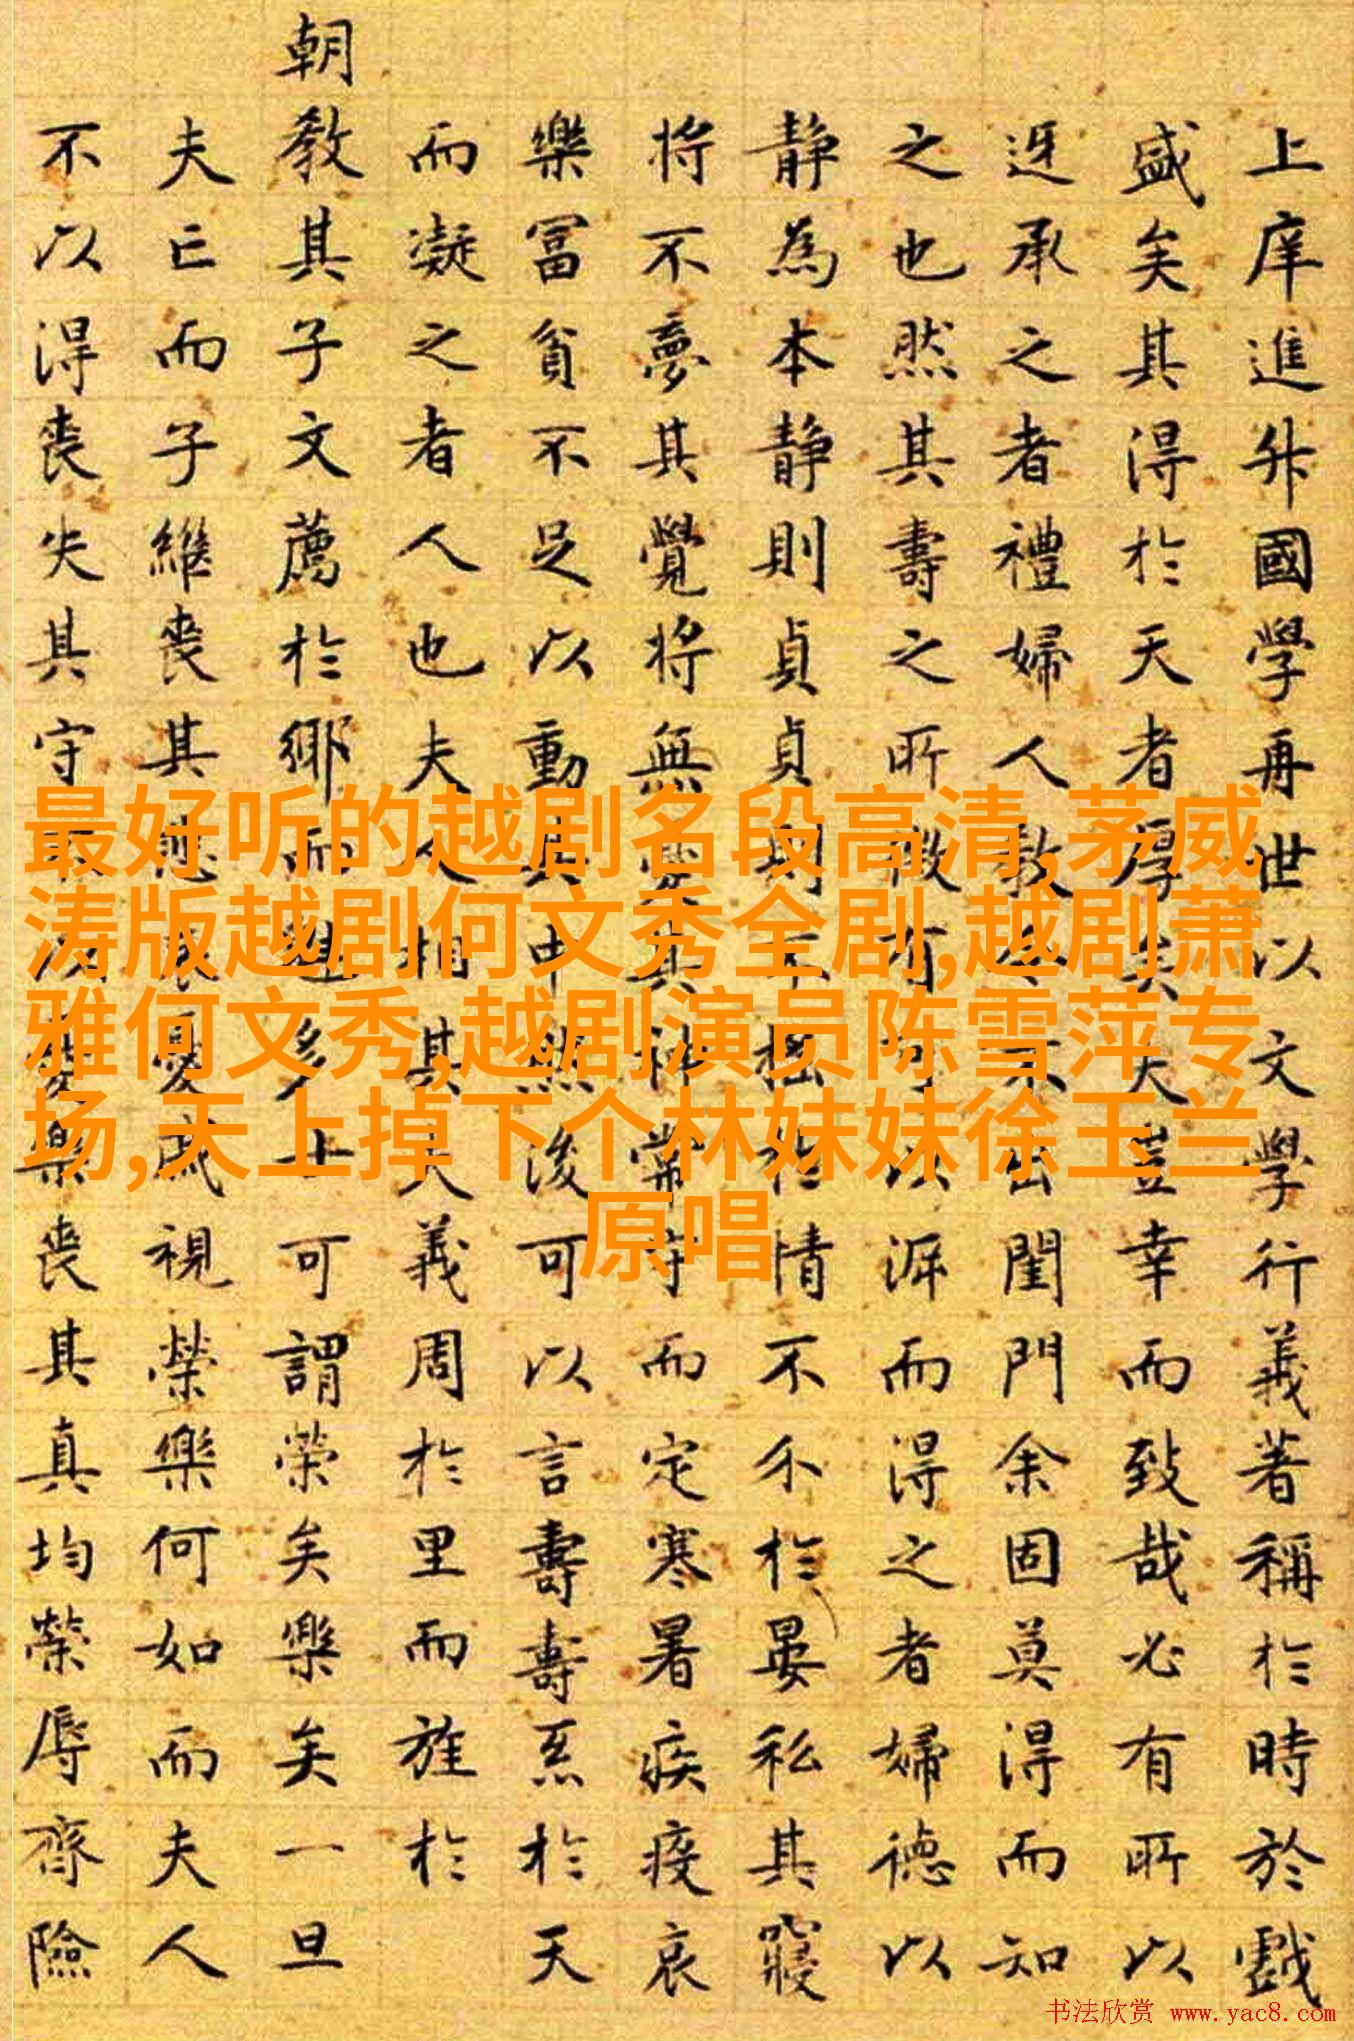 上庠進升國學再世以文學行義著稱於時於戲
盛矣其得於天者厚矣夫豈幸而致哉必有所以
迓承之者禮婦人教令不出閨門余固莫得而知
之也然其壽之所徵有可以涯而得之者婦德以
静為本静則貞貞則不搖於情不尒於晏私其寢
将不夢其覺将無
其神常守而定寒暑疾疫哀
樂冨貧不足以動其中然後可以言壽壽系於天
而凝之者人也夫人相其夫義周於里而旌於
朝教其子文薦於鄉而
多士可謂榮矣樂矣一旦
夫亡而子継喪其
哀憂戚視榮樂何如而夫人
不以得喪失其守不以憂樂喪其真均榮辱齊險
最好听的越剧名段高清,茅威
涛版越剧何文秀全剧,越剧萧
雅何文秀,越剧演员陈雪萍专
场,天上掉下个林妹妹徐玉兰
原唱
书法欣赏 www.yac8.com